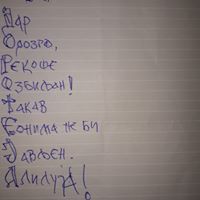 Дар
Орозро,
Рекоше
Озбиљан!
Такав
Еонима не би
Јављен.
Алилуја!